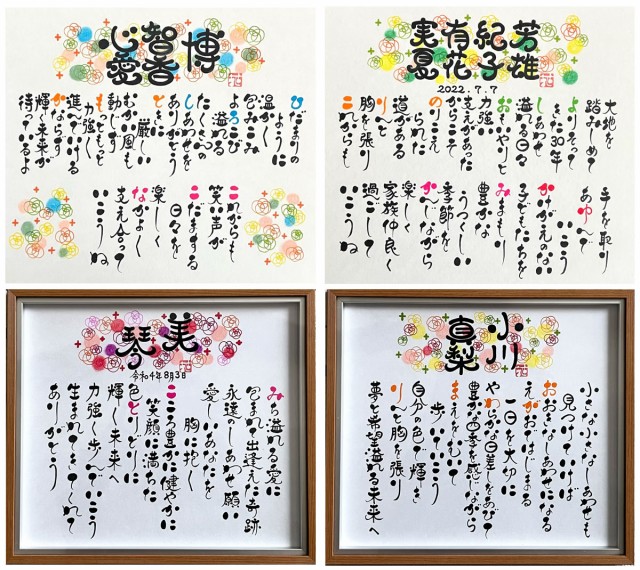 博
智香
心愛
ひだまりの
ように
温かく
包みこみ
よろこび
溢れる
たくさんの
しあわせを
ありがとう
ときに
厳しい
むかい風も
動じず
もっともっと
力強く
かならず
進んでいける
輝く未来が
待っているよ
これからも
笑い声が
こだまする
日々を
楽しく
なかよく
支え合って
いこうね
芳雄
紀子
有花
実夏
2022.7.7
大地を
踏みしめて
よりそって
きた30年
しあわせ
溢れる日々
おもいやりと
力強い
支えがあった
からこそ
のりこえ
られた
道がある
りんと
胸を張り
これからも
手を取り
あゆんで
いこう
かけがえのない
子どもたちを
みまもり
豊かな
うつくしい
季節を
かんじながら
楽しく
家族仲良く
過ごして
いこうね
美琴
令和4年8月3日
みち溢れる愛に
包まれ出逢えた奇跡
永遠のしあわせ願い
愛しいあなたを
胸に抱く
こころ豊かに健やかに
笑顔に満ちた
色とりどりに
輝く未来へ
力強く歩んでいこう
生まれてきてくれて
ありがとう
小川
真梨
小さな小さなしあわせも
見つけていけば
おおきなしあわせになる
えがおではじまる
一日を大切に
やわらかな日差しをあびて
豊かな四季を感じながら
まえをむいて
歩いていこう
自分の色で輝き
りんと胸を張り
夢と希望溢れる未来へ